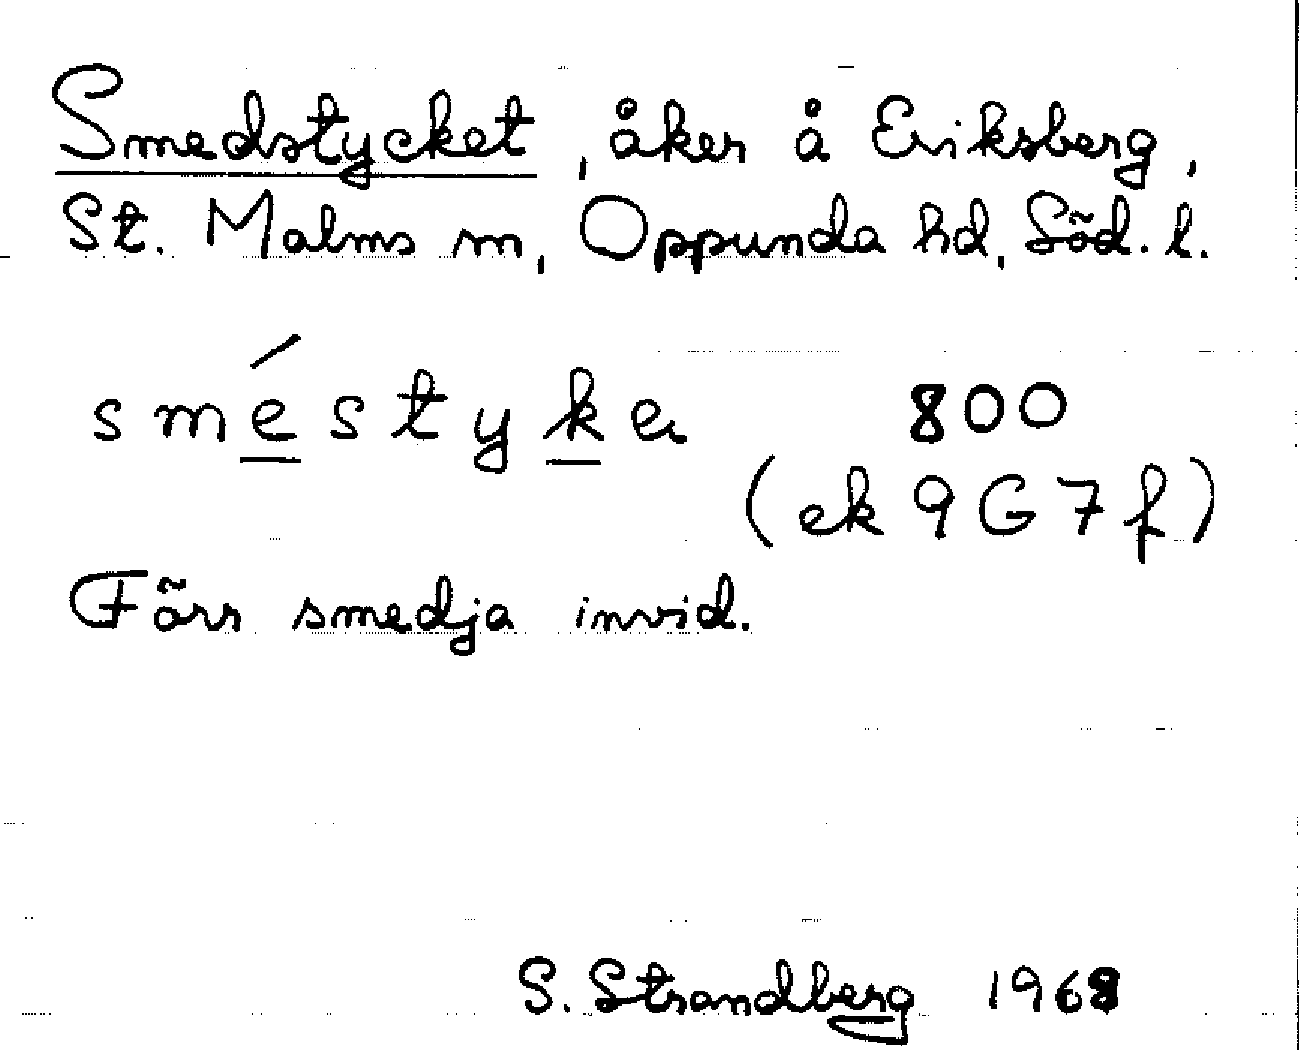 Smedstycket, åker å Eriksberg,
St. Malms sn, Oppunda hd, Söd. l.
sméstyke 800
(ek 9G7f)
Förr smedja invid.
S. Strandberg 1968